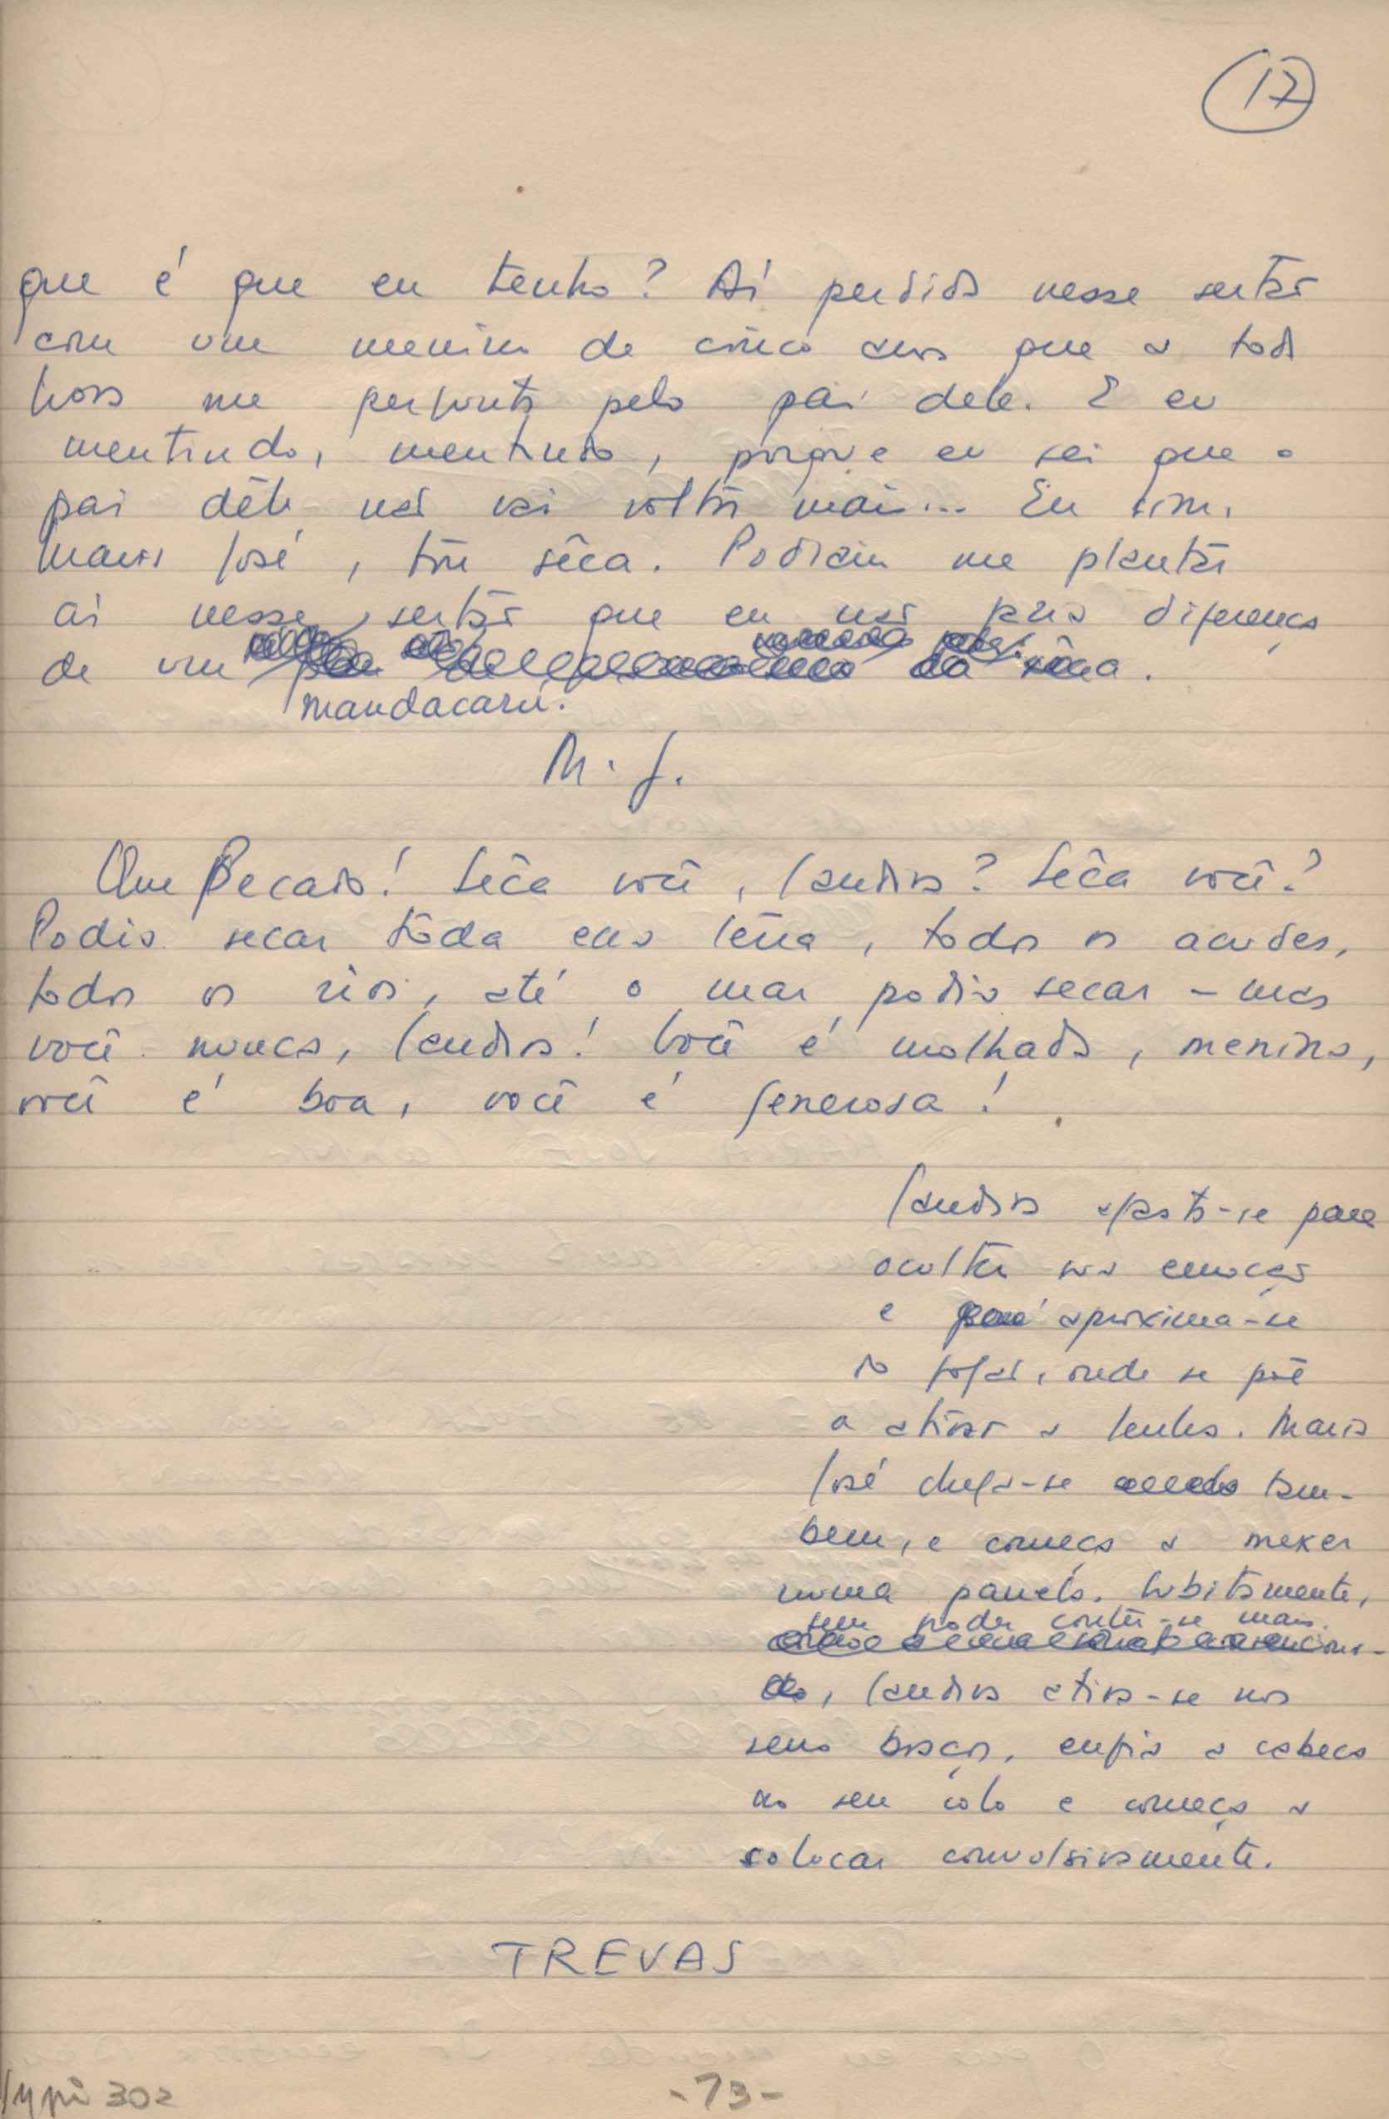 17
que é que eu tenho? Aí perdida nesse sertão
com um menino de cinco anos que a toda
hora me pergunta pelo pai dele. E eu
mentindo, mentindo, porque eu sei que o
pai dêle não vai voltar mais... Eu sim,
Maria José, tou sêca. Podiam me plantar
aí nesse sertão que eu não fazia diferença
de um
mandacarú.
M. J.
Que pecado! Sêca você, Sandra? Sêca você?
Podia secar tôda essa terra, todos os açudes,
todos os rios, até o mar podia secar - mas
você nunca, Sandra! Você é molhada, menina,
você é boa, você é generosa!
Sandra afasta-se para
ocultar sua emoção
e aproxima-se
do fogão, onde se põe
a atiçar a lenha. Maria
José chega-se tam-
bem, e começa a mexer
numa panela. Subitamente,
sem poder conter-se mais
, Sandra atira-se nos
seus braços, enfia a cabeça
no seu colo e começa a
soluçar convulsivamente.
TREVAS
302
-73-